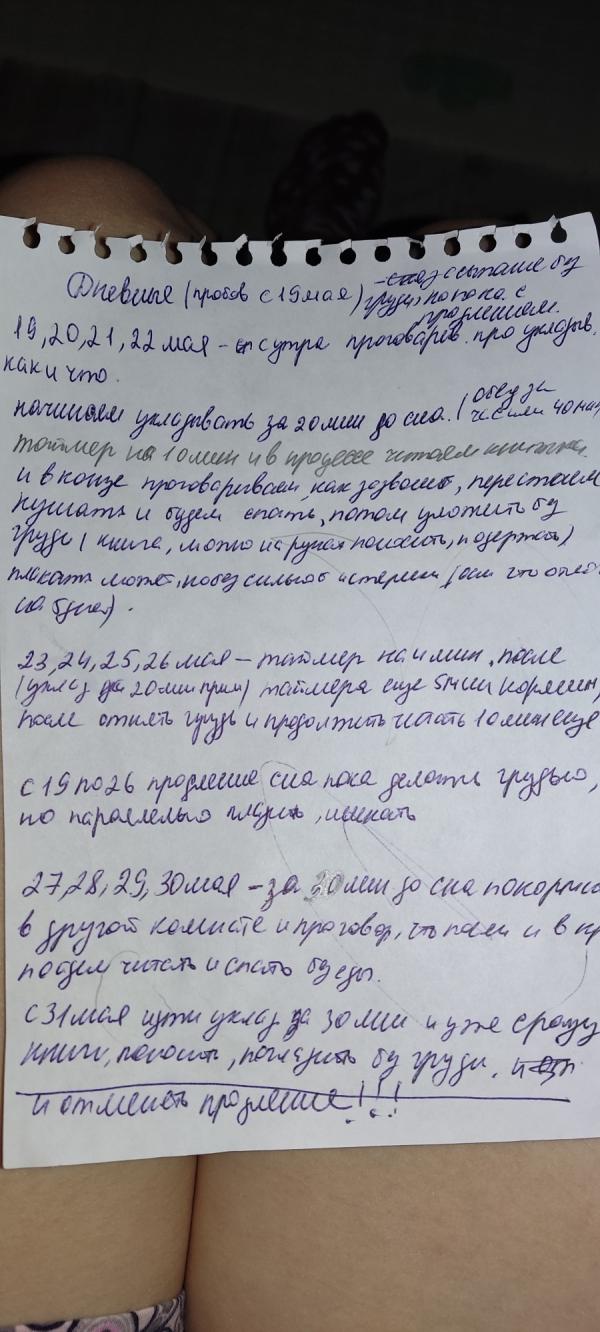 Дневные (пробов с 19 мая) - засыпание бу
груди, но пока с
продлением.
19, 20, 21, 22 мая - с утра проговарив. про укладыв.
как и что.
начинаем укладывать за 20 мин до сна. (обед за
час или 40 мин
таймер на 10 мин и в процессе читаем книжки.
и в конце проговариваем, как зазвонит, перестаем
кушать и будем спать, потом уложить бу
груди (книга, можно на руках поносить, подержать)
плакать может, но без сильной истерики (если что
).
23, 24, 25, 26 мая - таймер на 4 мин, после
(уклад за 20 мин прим) таймера еще 5 мин кормим,
после отнять грудь и продолжить читать 10 мин еще
с 19 по 26 продление сна пока делать грудью,
но параллельно гладить, шикать
27, 28, 29, 30 мая - за 20 мин до сна
в другой комнате и проговор, что поели и в
пойдем читать и спать бу еды.
с 31 мая уклад за 30 мин и уже сразу
книги, поносить, погладить бу груди.
и отменять продление!!!